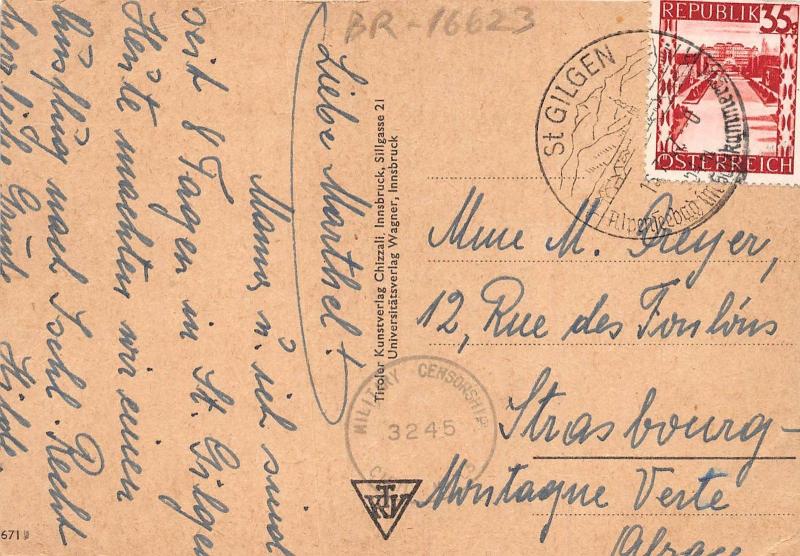 BR-16623
Liebe Marthel!
Mama u. ich sind
seit 8 Tagen in St. Gilgen
Heute machten wir einen
Ausflug nach Ischl. Recht
herzliche Grüße Hilde.
Tiroler Kunstverlag Chizzali, Innsbruck, Sillgasse 21
Universitätsverlag Wagner, Innsbruck
REPUBLIK 35
ÖSTERREICH
St GILGEN
Alpenseebad im Salzkammergut
MILITARY CENSORSHIP
3245
KTV
Mme M. Greyer,
12, Rue des Foulons
Strasbourg-
Montagne Verte
Alsace
671